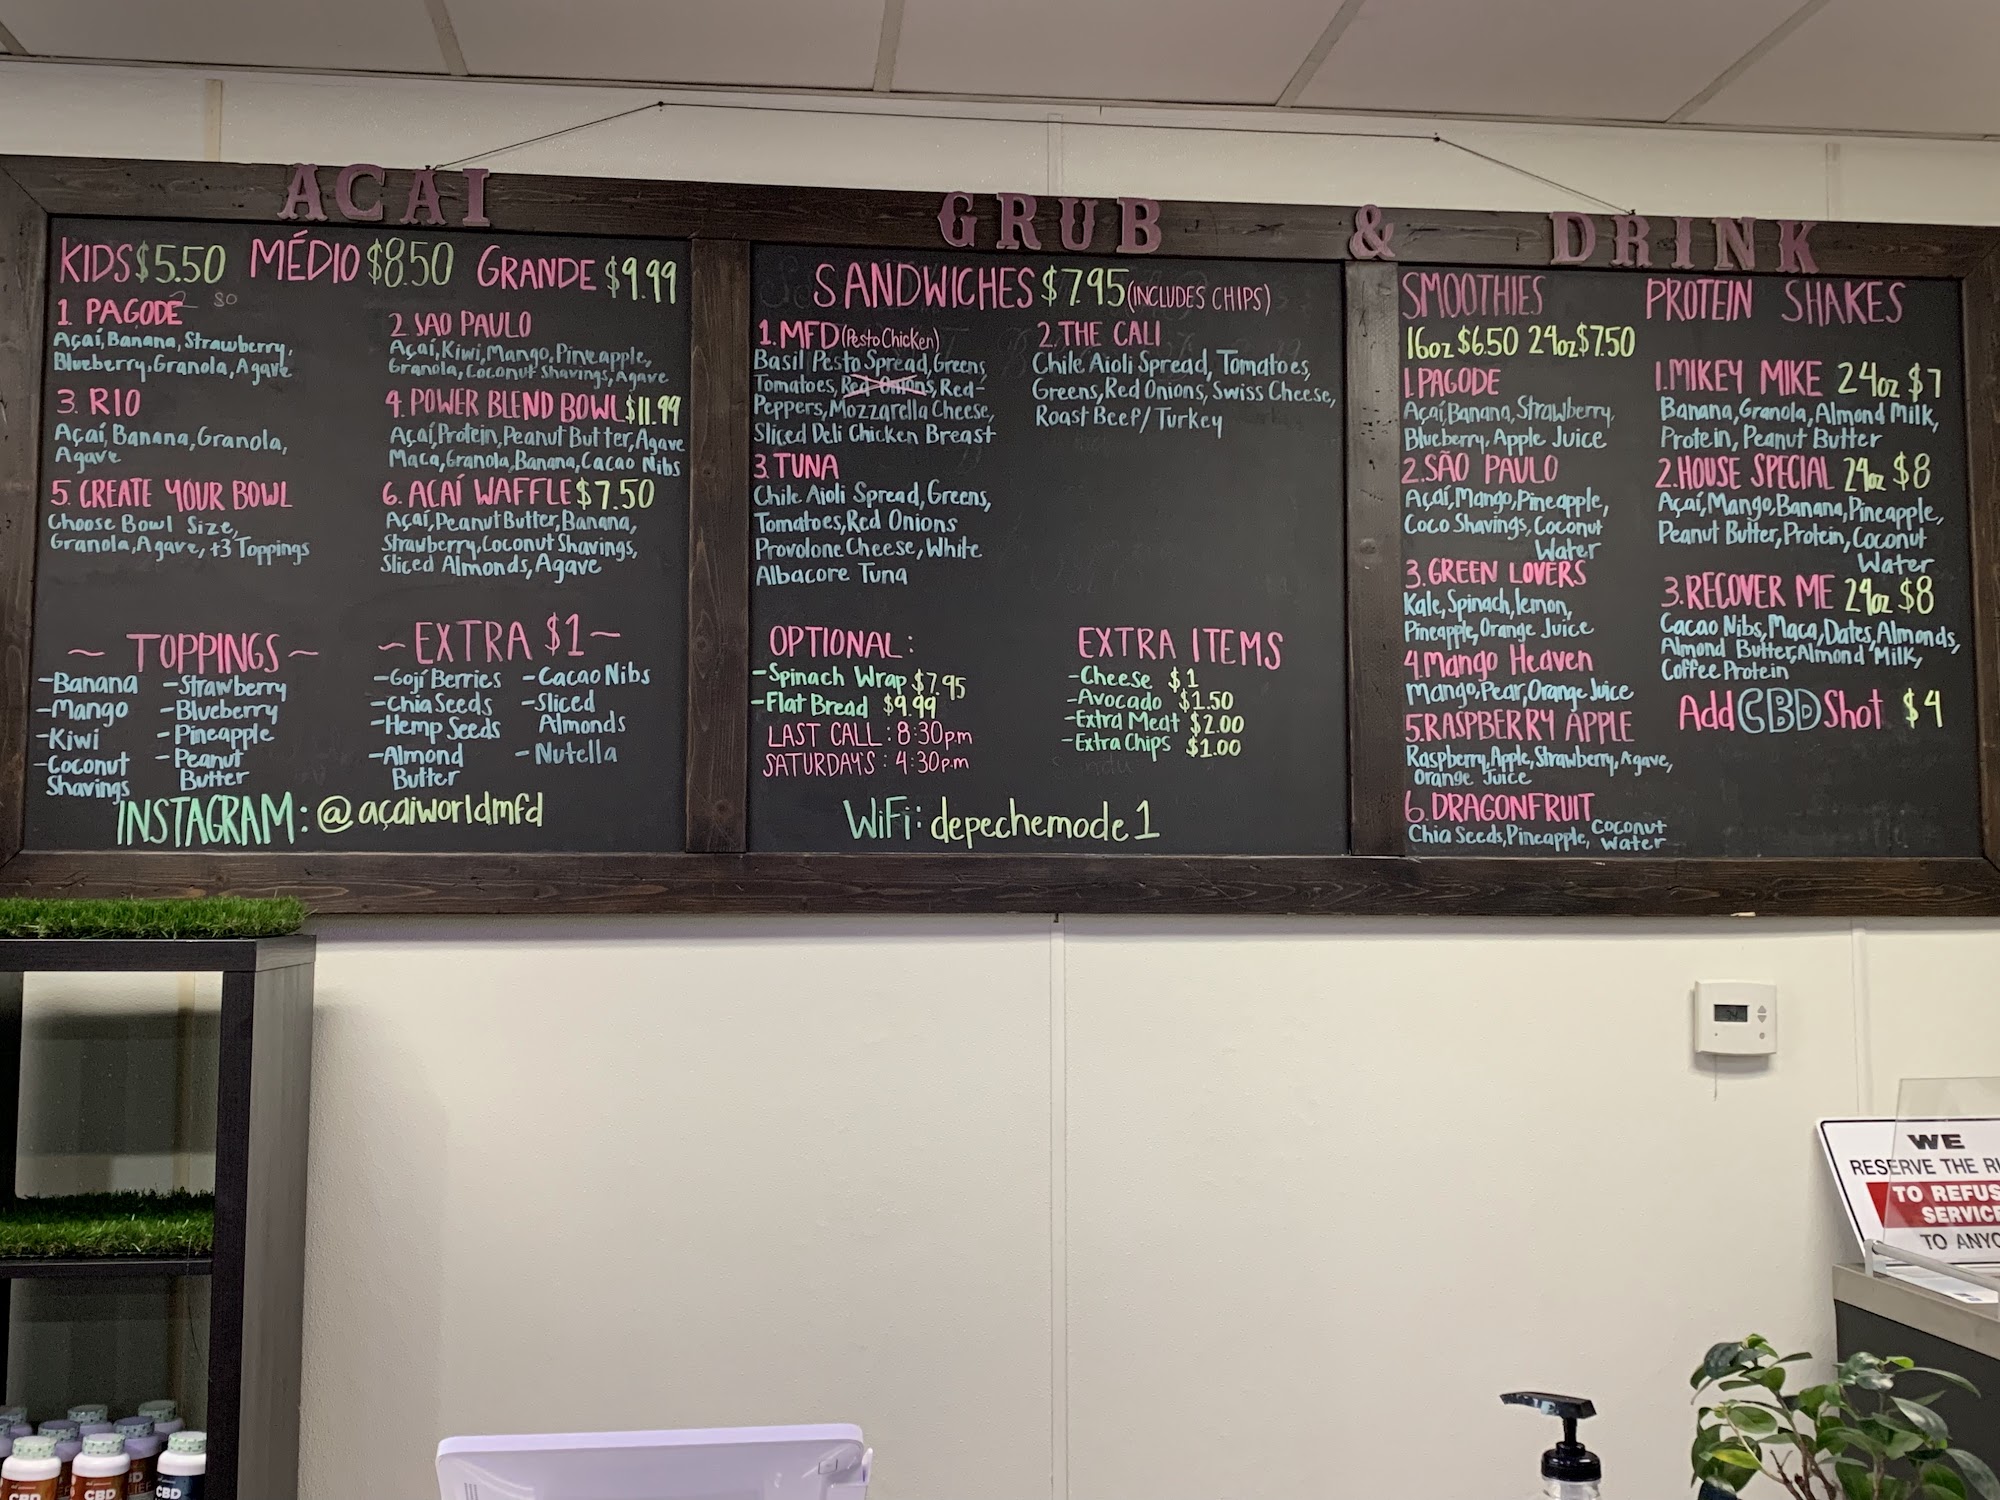 AÇAI
KIDS $5.50 MÉDIO $8.50 GRANDE $9.99
1. PAGODE
Açaí, Banana, Strawberry,
Blueberry, Granola, Agave
2. SAO PAULO
Açaí, Kiwi, Mango, Pineapple,
Granola, Coconut Shavings, Agave
3. RIO
Açaí, Banana, Granola,
Agave
4. POWER BLEND BOWL $11.99
Açaí, Protein, Peanut Butter, Agave
Maca, Granola, Banana, Cacao Nibs
5. CREATE YOUR BOWL
Choose Bowl Size,
Granola, Agave, +3 Toppings
6. AÇAÍ WAFFLE $7.50
Açaí, Peanut Butter, Banana,
Strawberry, Coconut Shavings,
Sliced Almonds, Agave
~ TOPPINGS ~
-Banana
-Mango
-Kiwi
-Coconut
Shavings
-Strawberry
-Blueberry
-Pineapple
-Peanut
Butter
~EXTRA $1~
-Gojí Berries
-Chia Seeds
-Hemp Seeds
-Almond
Butter
-Cacao Nibs
-Sliced
Almonds
-Nutella
INSTAGRAM: @açaiworldmfd
GRUB & DRINK
SANDWICHES $7.95 (INCLUDES CHIPS)
1. MFD (Pesto Chicken)
Basil Pesto Spread, Greens
Tomatoes, Red Onions, Red-
Peppers, Mozzarella Cheese,
Sliced Deli Chicken Breast
2. THE CALI
Chile Aioli Spread, Tomatoes,
Greens, Red Onions, Swiss Cheese,
Roast Beef/Turkey
3. TUNA
Chile Aioli Spread, Greens,
Tomatoes, Red Onions
Provolone Cheese, White
Albacore Tuna
OPTIONAL:
-Spinach Wrap $7.95
-Flat Bread $9.99
LAST CALL: 8:30p.m
SATURDAY'S: 4:30p.m
EXTRA ITEMS
-Cheese $1
-Avocado $1.50
-Extra Meat $2.00
-Extra Chips $1.00
WiFi: depechemode1
SMOOTHIES
16oz $6.50 24oz $7.50
1. PAGODE
Açaí, Banana, Strawberry,
Blueberry, Apple Juice
2. SÃO PAULO
Açaí, Mango, Pineapple,
Coco Shavings, Coconut
Water
3. GREEN LOVERS
Kale, Spinach, lemon,
Pineapple, Orange Juice
4. Mango Heaven
Mango, Pear, Orange Juice
5. RASPBERRY APPLE
Raspberry, Apple, Strawberry, Agave,
Orange Juice
6. DRAGONFRUIT
Chia Seeds, Pineapple, Coconut
Water
PROTEIN SHAKES
1. MIKEY MIKE 24oz $7
Banana, Granola, Almond Milk,
Protein, Peanut Butter
2. HOUSE SPECIAL 24oz $8
Açaí, Mango, Banana, Pineapple,
Peanut Butter, Protein, Coconut
Water
3. RECOVER ME 24oz $8
Cacao Nibs, Maca, Dates, Almonds,
Almond Butter, Almond Milk,
Coffee Protein
Add CBD Shot $4
WE
RESERVE THE RI
TO REFUS
SERVICE
TO ANYO
CBD
CBD
CBD